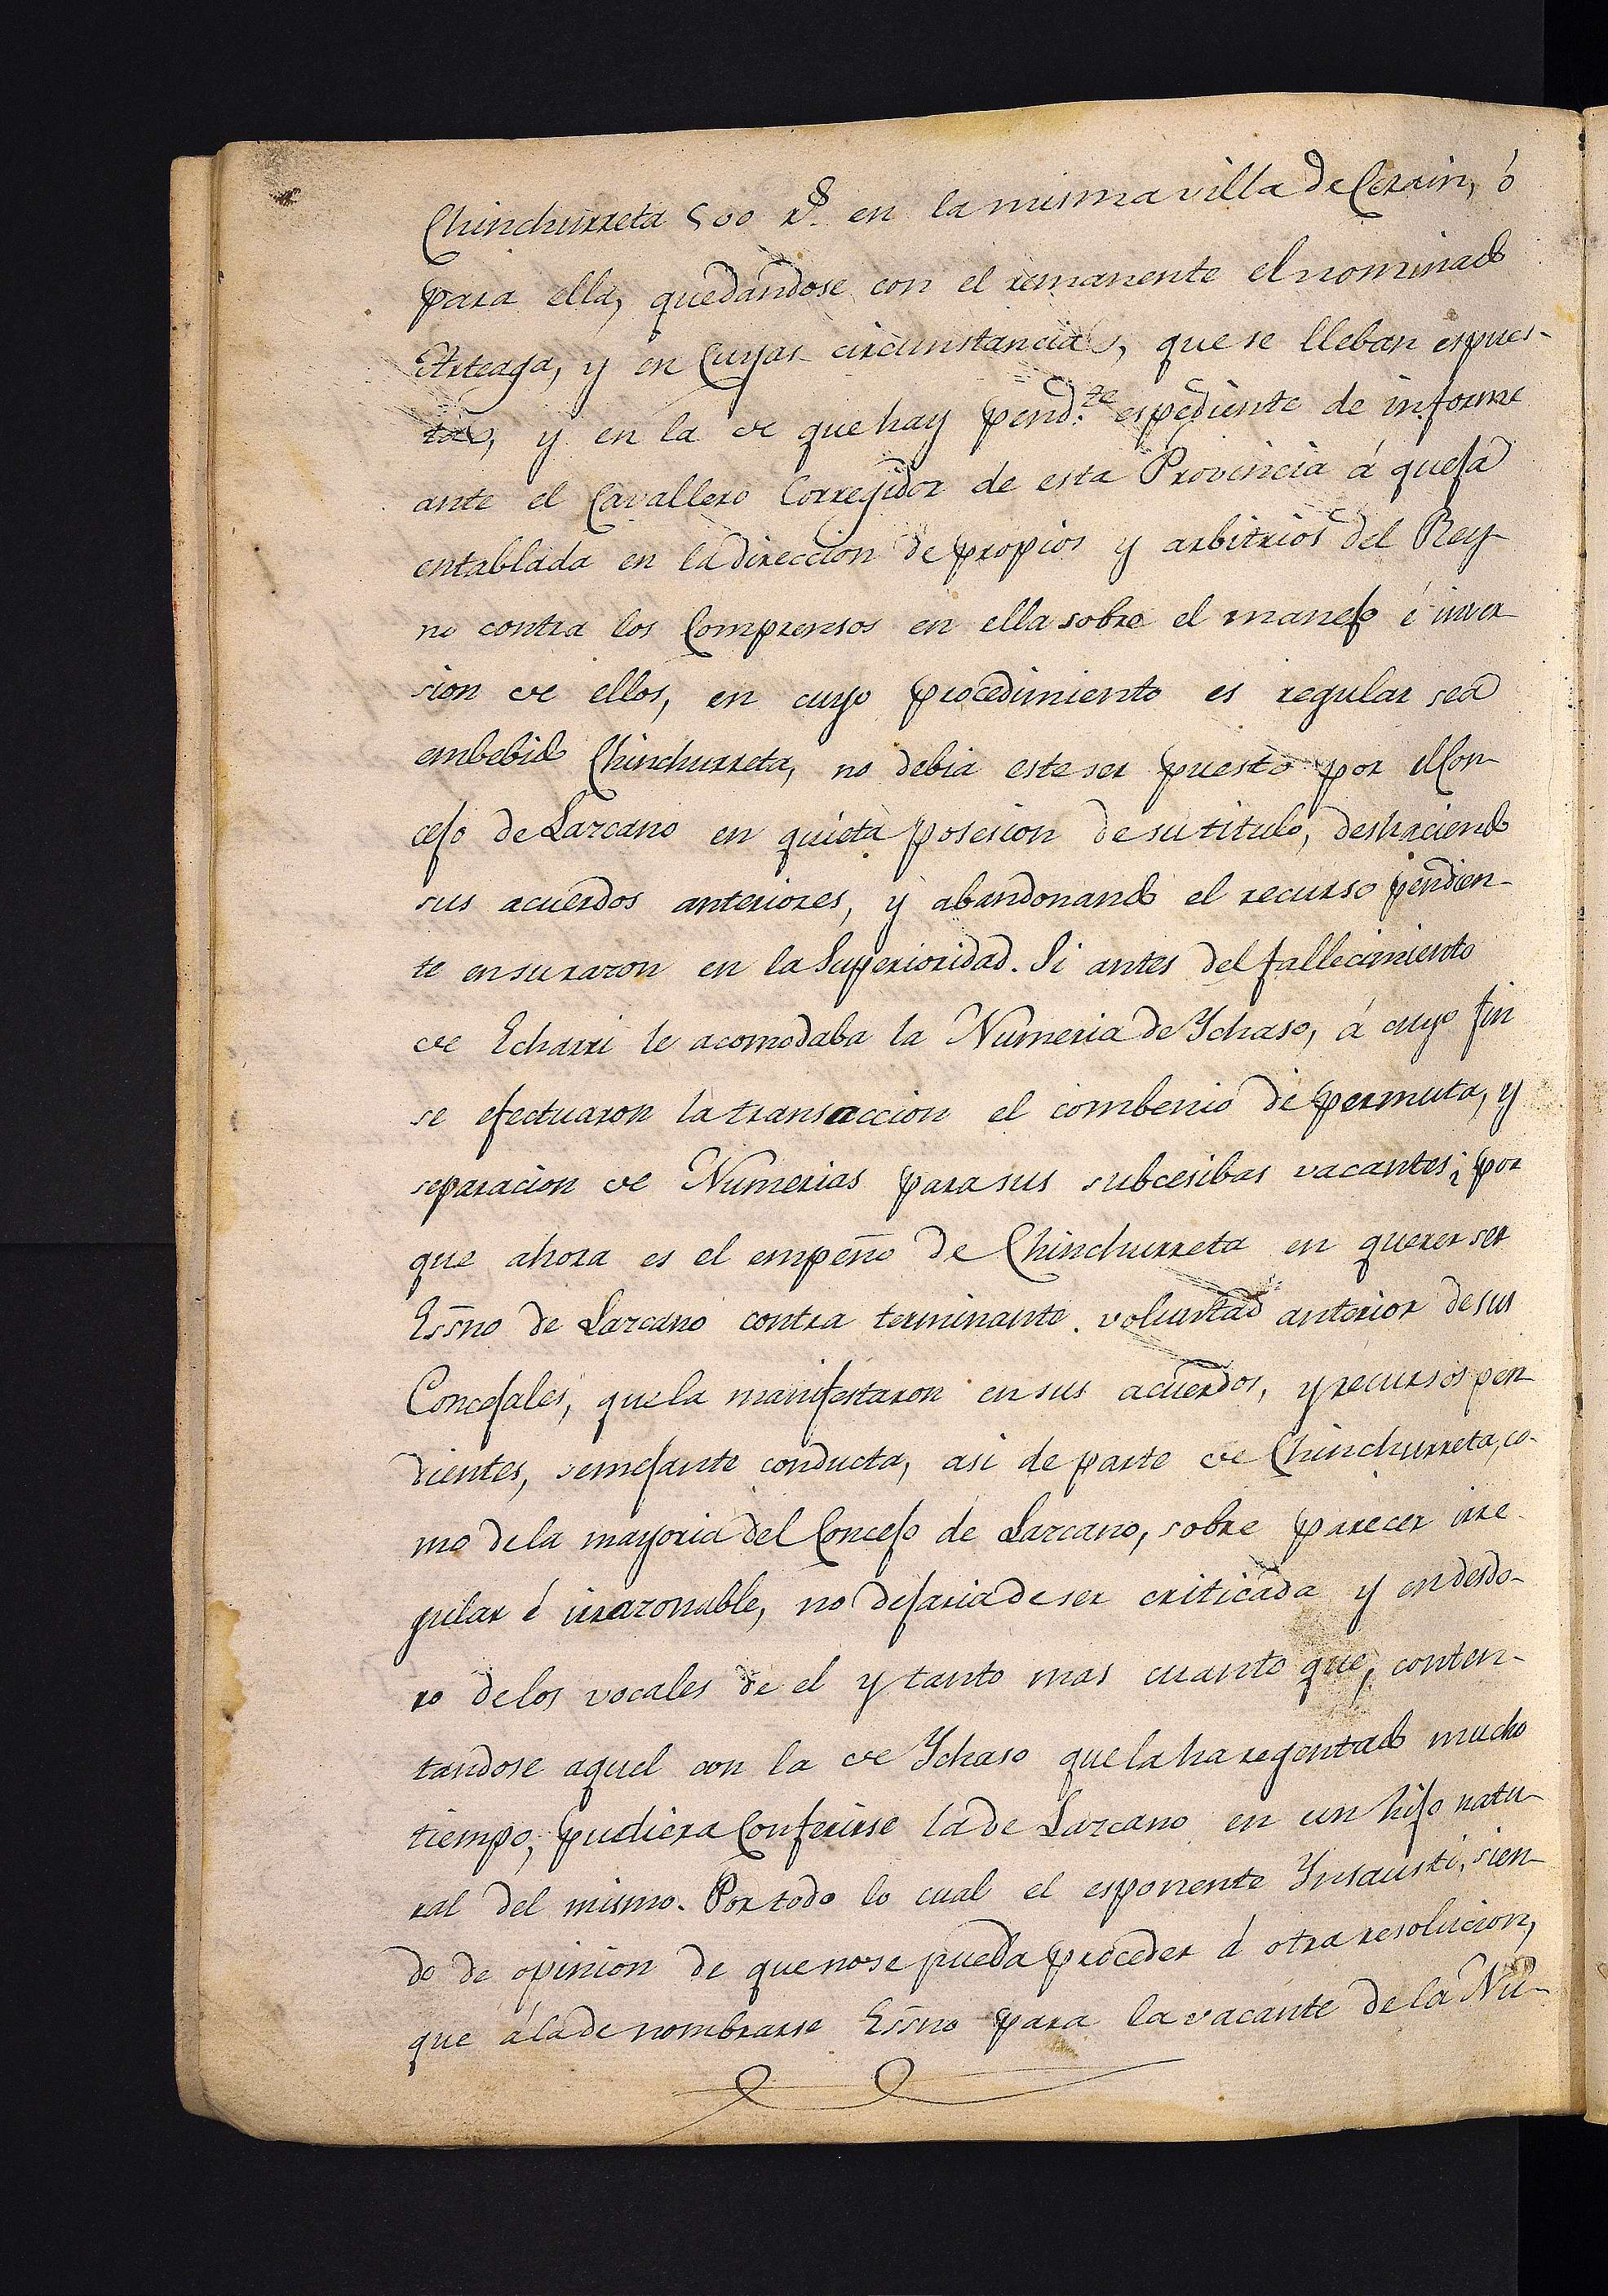 Chinchurreta 500 r.s en la misma villa de Cerain, ó
para ella, quedandose con el remanente el nominado
Arteaga, y en cuyas circunstancias, que se lleban espues-
tas, y en la de que hay pend.te espediente de informe
ante el Cavallero Corregidor de esta Provincia á queja
entablada en la direccion de propios y arbitrios del Rey-
no contra los Comprensos en ella sobre el manejo é inver
sion de ellos, en cuyo procedimiento es regular sea
embebido Chinchurreta, no debia este ser puesto por el Con-
cejo de Lazcano en quieta posesion de su titulo, deshaciendo
sus acuerdos anteriores, y abandonando el recurso pendien-
te en su razon en la Superioridad. Si antes del fallecimiento
de Echarri le acomodaba la Numeria de Ychaso, á cuyo fin
se efectuaron la transaccion el combenio de permuta, y
separacion de Numerias para sus subcesibas vacantes; ¿por
que ahora es el empeño de Chinchurreta en querer ser
Essno de Lazcano contra terminante voluntad anterior de sus
Concejales, que la manifestaron en sus acuerdos, y recursos pen
dientes, semejante conducta, asi de parte de Chinchurreta, co-
mo de la mayoria del Concejo de Lazcano, sobre parecer irre-
gular é irrazonable, no dejaria de ser criticada y en desdo-
ro de los vocales de el y tanto mas cuanto que, conten-
tandose aquel con la de Ychaso que la ha regentado mucho
tiempo, pudiera Conferirse la de Lazcano en un hijo natu-
ral del mismo. Por todo lo cual el esponente Ynsausti, sien-
do de opinion de que no se pueda proceder á otra resolucion,
que á la de nombrarse Essno para la vacante de la Nu-